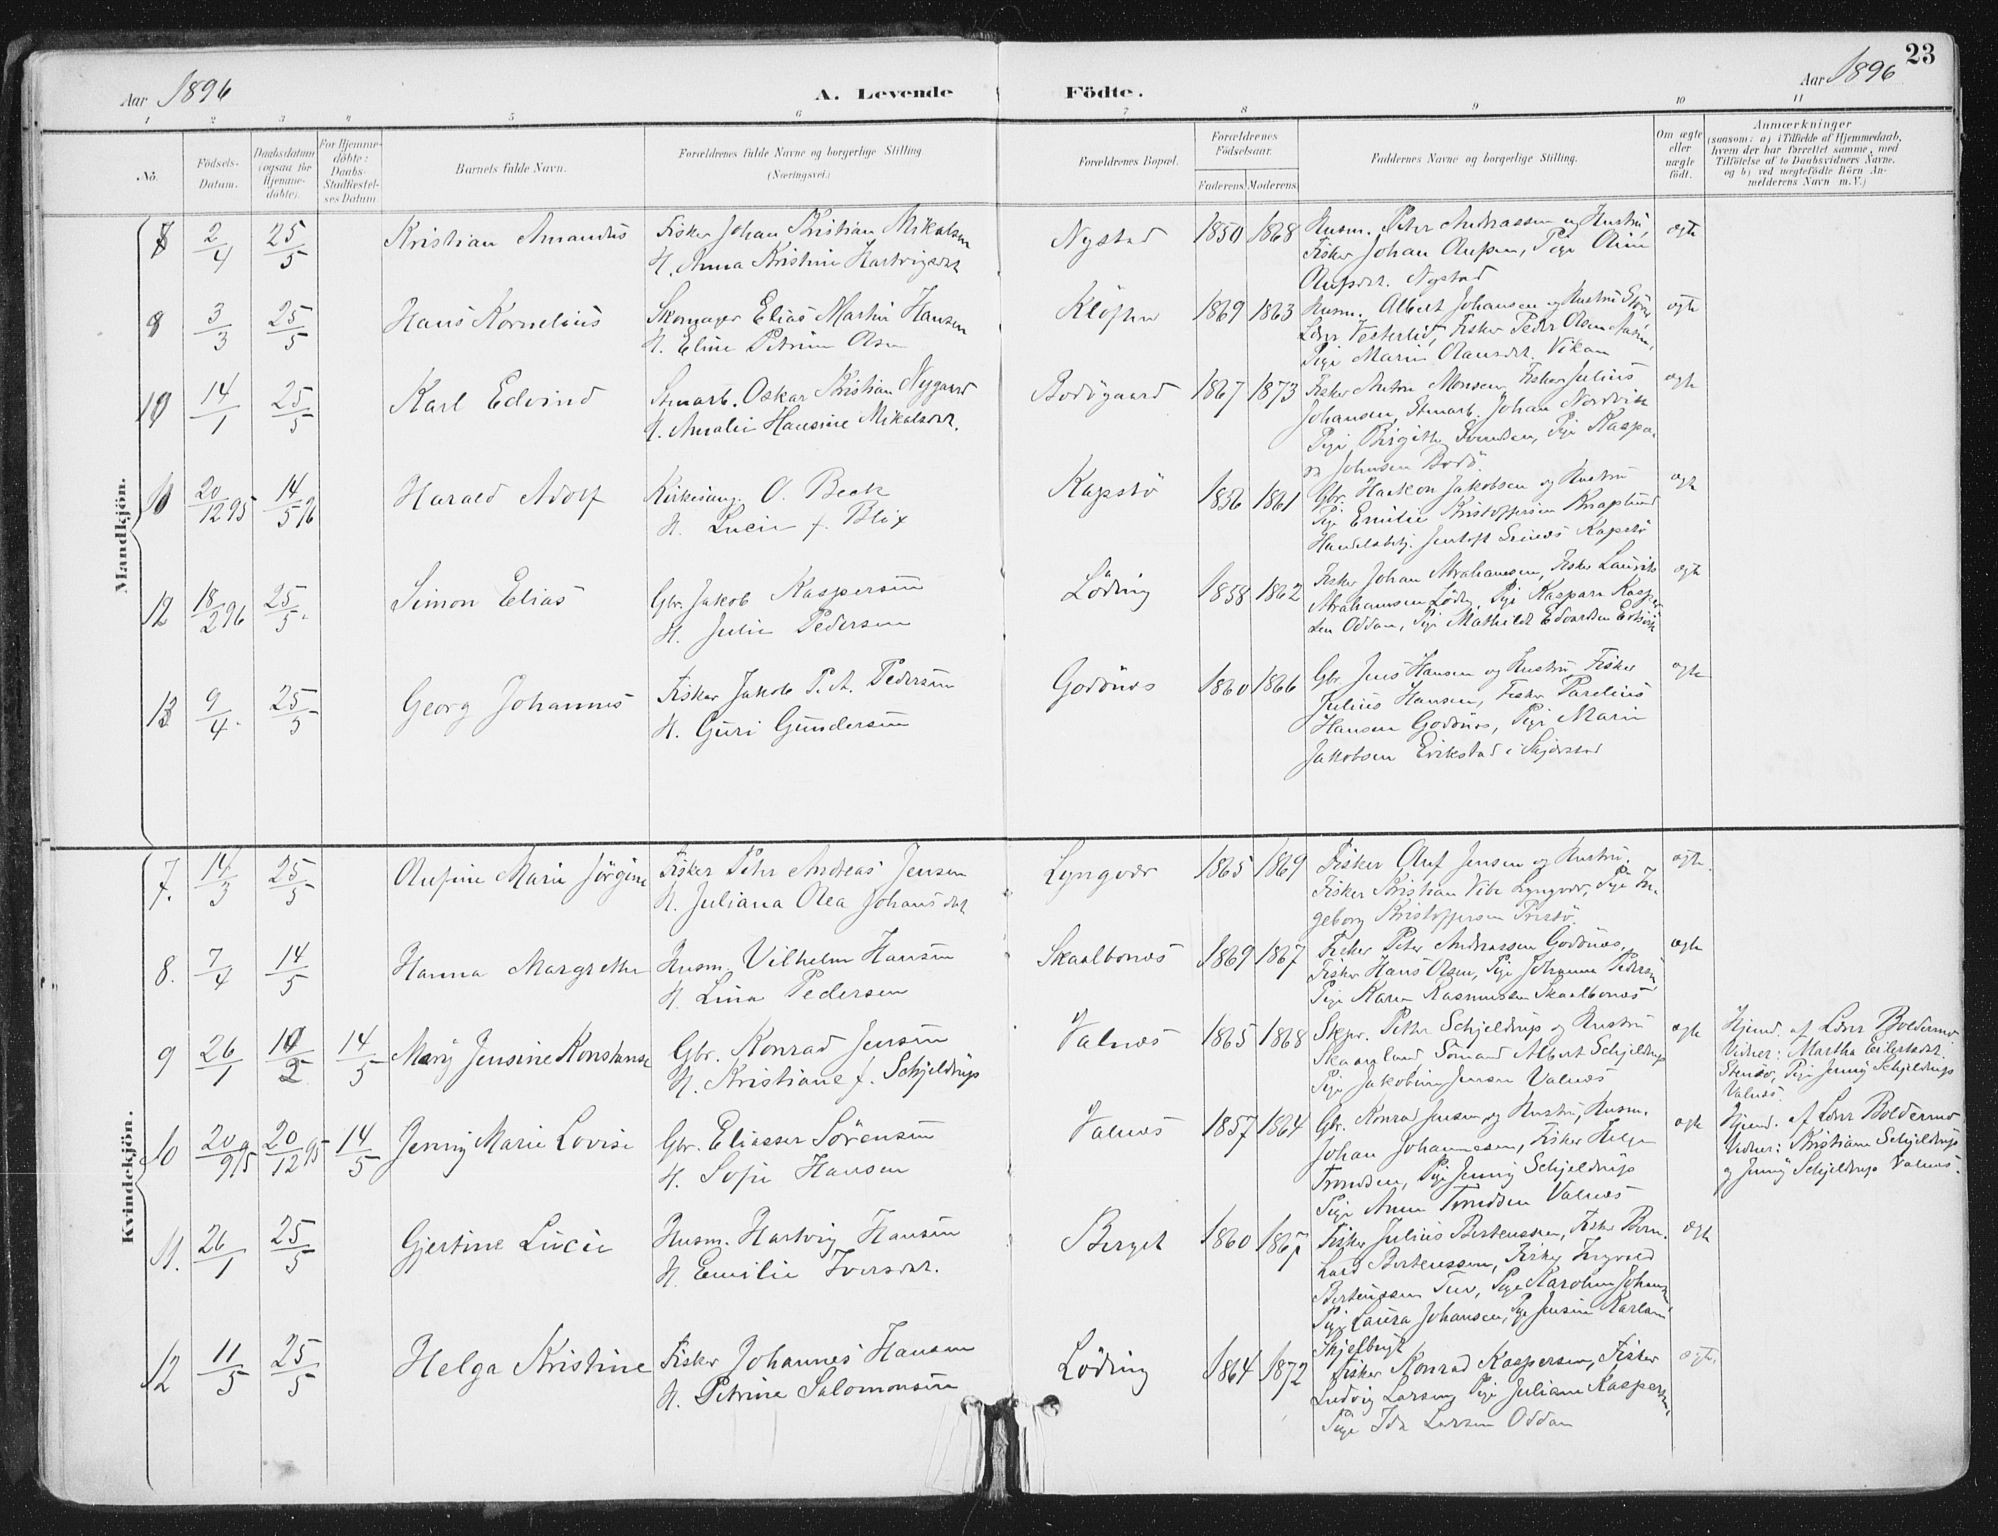 23
Aar 1896
A. Levende
Födte.
Aar 1896
1 2 3 4 5 6 7 8 9 10 11
No.
Födsels-Datum.
Daabsdatum (ogsaa for Hjemmedöbte).
For Hjemmedöbte: Daabs-Stadfæstelses Datum
Barnets fulde Navn.
Forældrenes fulde Navne og borgerlige Stilling
(Næringsvei.)
Forældrenes Bopæl.
Forældrenes Födselsaar.
Faderens. Moderens.
Faddernes Navne og borgerlige Stilling.
Om ægte eller uægte födt.
Anmærkninger
(saasom: a) i Tilfælde af Hjemmedaab,
hvem der har forrettet samme, med
Tilföielse af to Daabsvidners Navne.
og b) ved uægtefödte Börn An-
melderens Navn m. V.)
Mandkjön.
8 2/4 25/5 Kristian Amandus
Fisker Johan Kristian Mikalsen
H. Anna Kristine Hartvigsdat
Nystad 1850 1868
Husm. Peter Andreassen og Hustru,
Fisker Johan Olufsen, Pige Oline
Olufsdat. Nystad
ægte
9 3/3 25/5 Hans Kornelius
Skomager Elias Martin Hansen
H. Eline Petrine Olsen
Klöften 1869 1863
Husm. Albert Johansen og Hustru
Vesterlid, Fisker Peder Olsen
Pige Marie Olausdat. Vikan
ægte
10 14/1 25/5 Karl Edvind
Stuarb. Oskar Kristian Nygaard
H. Amalie Hansine Mikalsdat.
Bodögaard 1867 1873
Fisker Anton Monsen, Fisker Julius
Johansen, Stuarb. Johan Nordvik
Pige Birgitte Svendsen, Pige Kaspa-
ra Johnsen Bodö.
ægte
11 20/12 95 14/5 96 Harald Adolf
Kirkesang. O. Beck
H. Lucie f. Blix
Kapstö 1856 1861
Gbr. Haakon Jakobsen og Hustru
Pige Emilie Kristoffersen Knaplund
Handelsbetj. Jentoft Kapstö
ægte
12 18/2 96 25/5 Simon Elias
Gbr. Jakob Kaspersen
H. Julie Pedersen
Löding 1858 1862
Fisker Johan Abrahamsen, Fisker Laurits
Abrahamsen Löding, Pige Kaspara Kasper-
sen Oddan, Pige Mathilde Edvardsen
ægte
13 9/4 25/5 Georg Johannes
Fisker Jakob P. A. Pedersen
H. Guri Gundersen
Godönes 1860 1866
Gbr. Jens Hansen og Hustru, Fisker
Julius Hansen, Fisker Parelius
Hansen Godönes, Pige Marie
Jakobsen Erikstad i Skjerstad
ægte
Kvindekjön.
7. 14/3 25/5 Olufine Marie Jörgine
Fisker Peter Andreas Jensen
H. Juliana Olea Johansdat
Lyngvær 1865 1869
Fisker Oluf Jensen og Hustru.
Fisker Kristian Vibe Lyngvær, Pige In-
geborg Kristoffersen
ægte.
8. 7/4 14/5 Hanna Margrethe
Husm. Vilhelm Hansen
H. Lina Pedersen
Skaalbones 1869 1867
Fisker Peter Andreassen Godönes,
Fisker Hans Olsen, Pige Johanna Pedersen,
Pige Karen Rasmussen Skaalbones
ægte
9 26/1 10/2 14/5 Mary Jensine Konstanse
Gbr. Konrad Jensen
H. Kristiane f. Schjeldrup
Valnes 1865 1868
Skpr. Petter Schjeldrup og Hustru
Skaanland Sömand Albert Schjeldrup
Pige Jakobine Jensen Valnes
ægte
Hjemd. af Lærer Boldermo
Vidner: Martha Eilertsdat.
Pige Jenny Schjeldrup
Valnes.
10 20/9 95 20/12 95 14/5 Jenny Marie Lovise
Gbr. Eliasser Sörensen
H. Sofie Hansen
Valnes 1857 1864
Gbr. Konrad Jensen og Hustru, Husm.
Johan Johannesen, Fisker Helge
Trondsen, Pige Jenny Schjeldrup
Pige Anna Trondsen Valnes
ægte
Hjemd. af Lærer Boldermo
Vidner: Kristiane Schjeldrup
og Jenny Schjeldrup Valnes.
11. 26/1 25/5 Gjertine Lucie
Husm. Hartvig Hansen
H. Emilie Iversdat.
Berget 1860 1867
Fisker Julius Bertenssen, Fisker Bern-
hard Bertenssen, Fisker Ingvald
Bertenssen Tuv, Pige Karoline Johansen,
Pige Laura Johansen, Pige Jensine Karlsen
Skjelbugt
ægte
12 11/5 25/5 Helga Kristine
Fisker Johannes Hansen
H. Petrine Salomonsen
Löding 1864 1872
Fisker Konrad Kaspersen, Fisker
Ludvig Larsen, Pige Juliane Kaspersen,
Pige Ida Larsen Oddan
ægte.